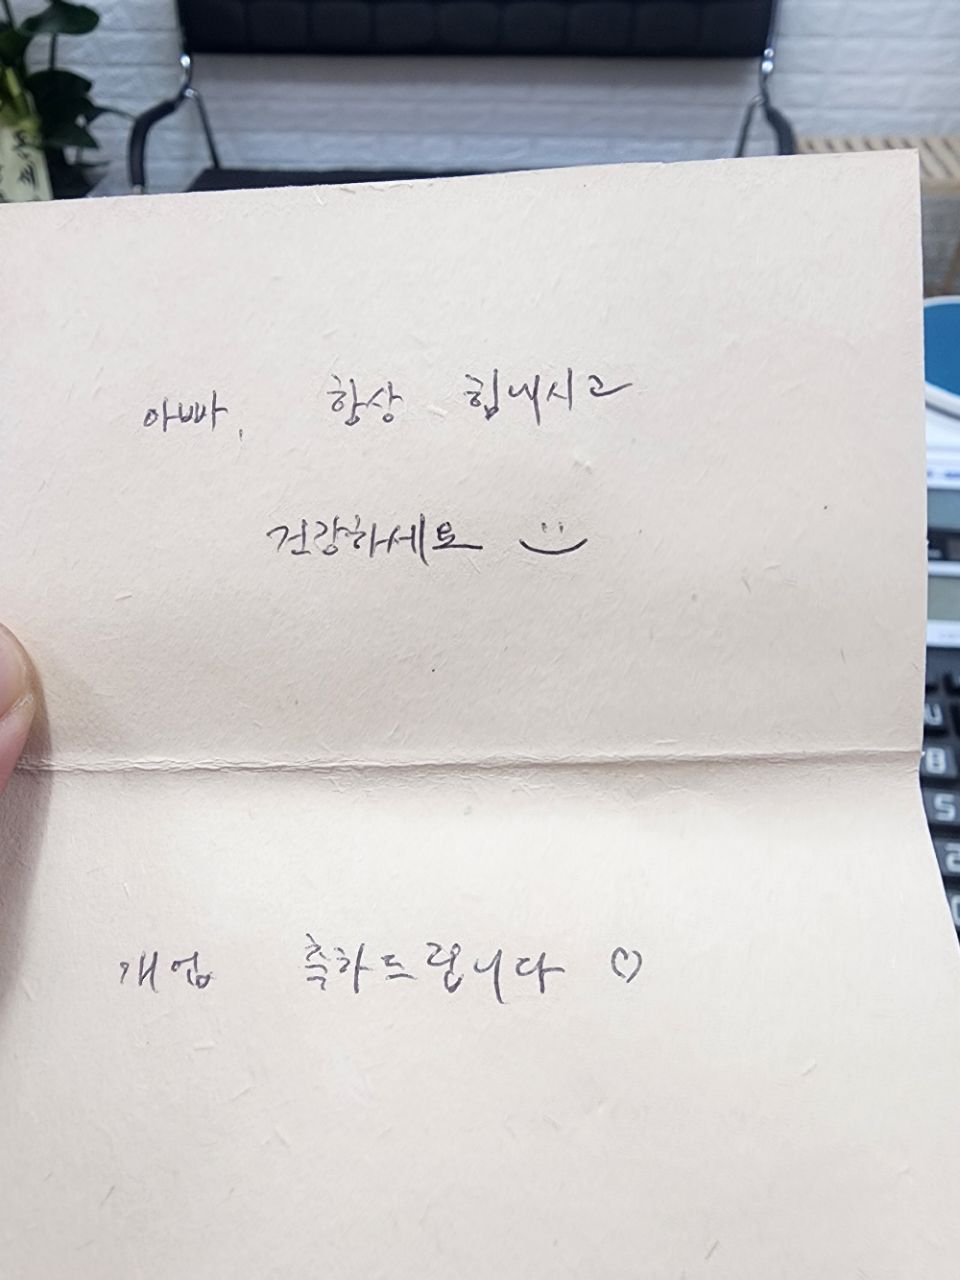 아빠, 항상 힘내시고
건강하세요
개업 축하드립니다 ♡
5